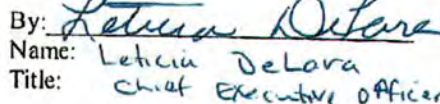 By: Leticia DeLara
Name: Leticia DeLara
Title: Chief Executive Officer